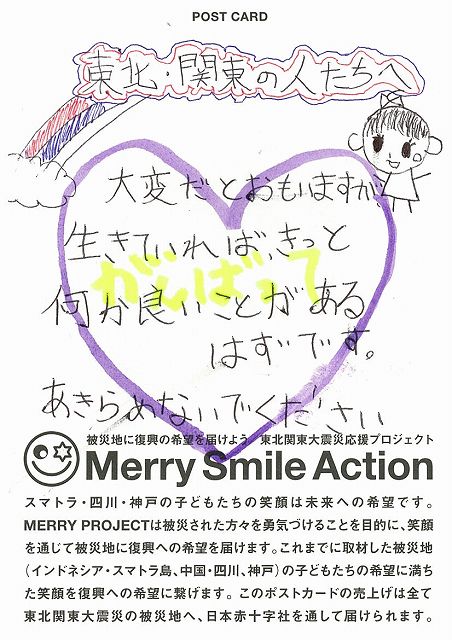 POST CARD
東北・関東の人たちへ
大変だとおもいますが、
生きていれば、きっと
がんばって
何か良いことがある
はずです。
あきらめないでください
被災地に復興の希望を届けよう 東北関東大震災応援プロジェクト
Merry Smile Action
スマトラ・四川・神戸の子どもたちの笑顔は未来への希望です。
MERRY PROJECTは被災された方々を勇気づけることを目的に、笑顔
を通じて被災地に復興への希望を届けます。これまでに取材した被災地
(インドネシア・スマトラ島、中国・四川、神戸)の子どもたちの希望に満ち
た笑顔を復興への希望に繋げます。このポストカードの売上げは全て
東北関東大震災の被災地へ、日本赤十字社を通して届けられます。